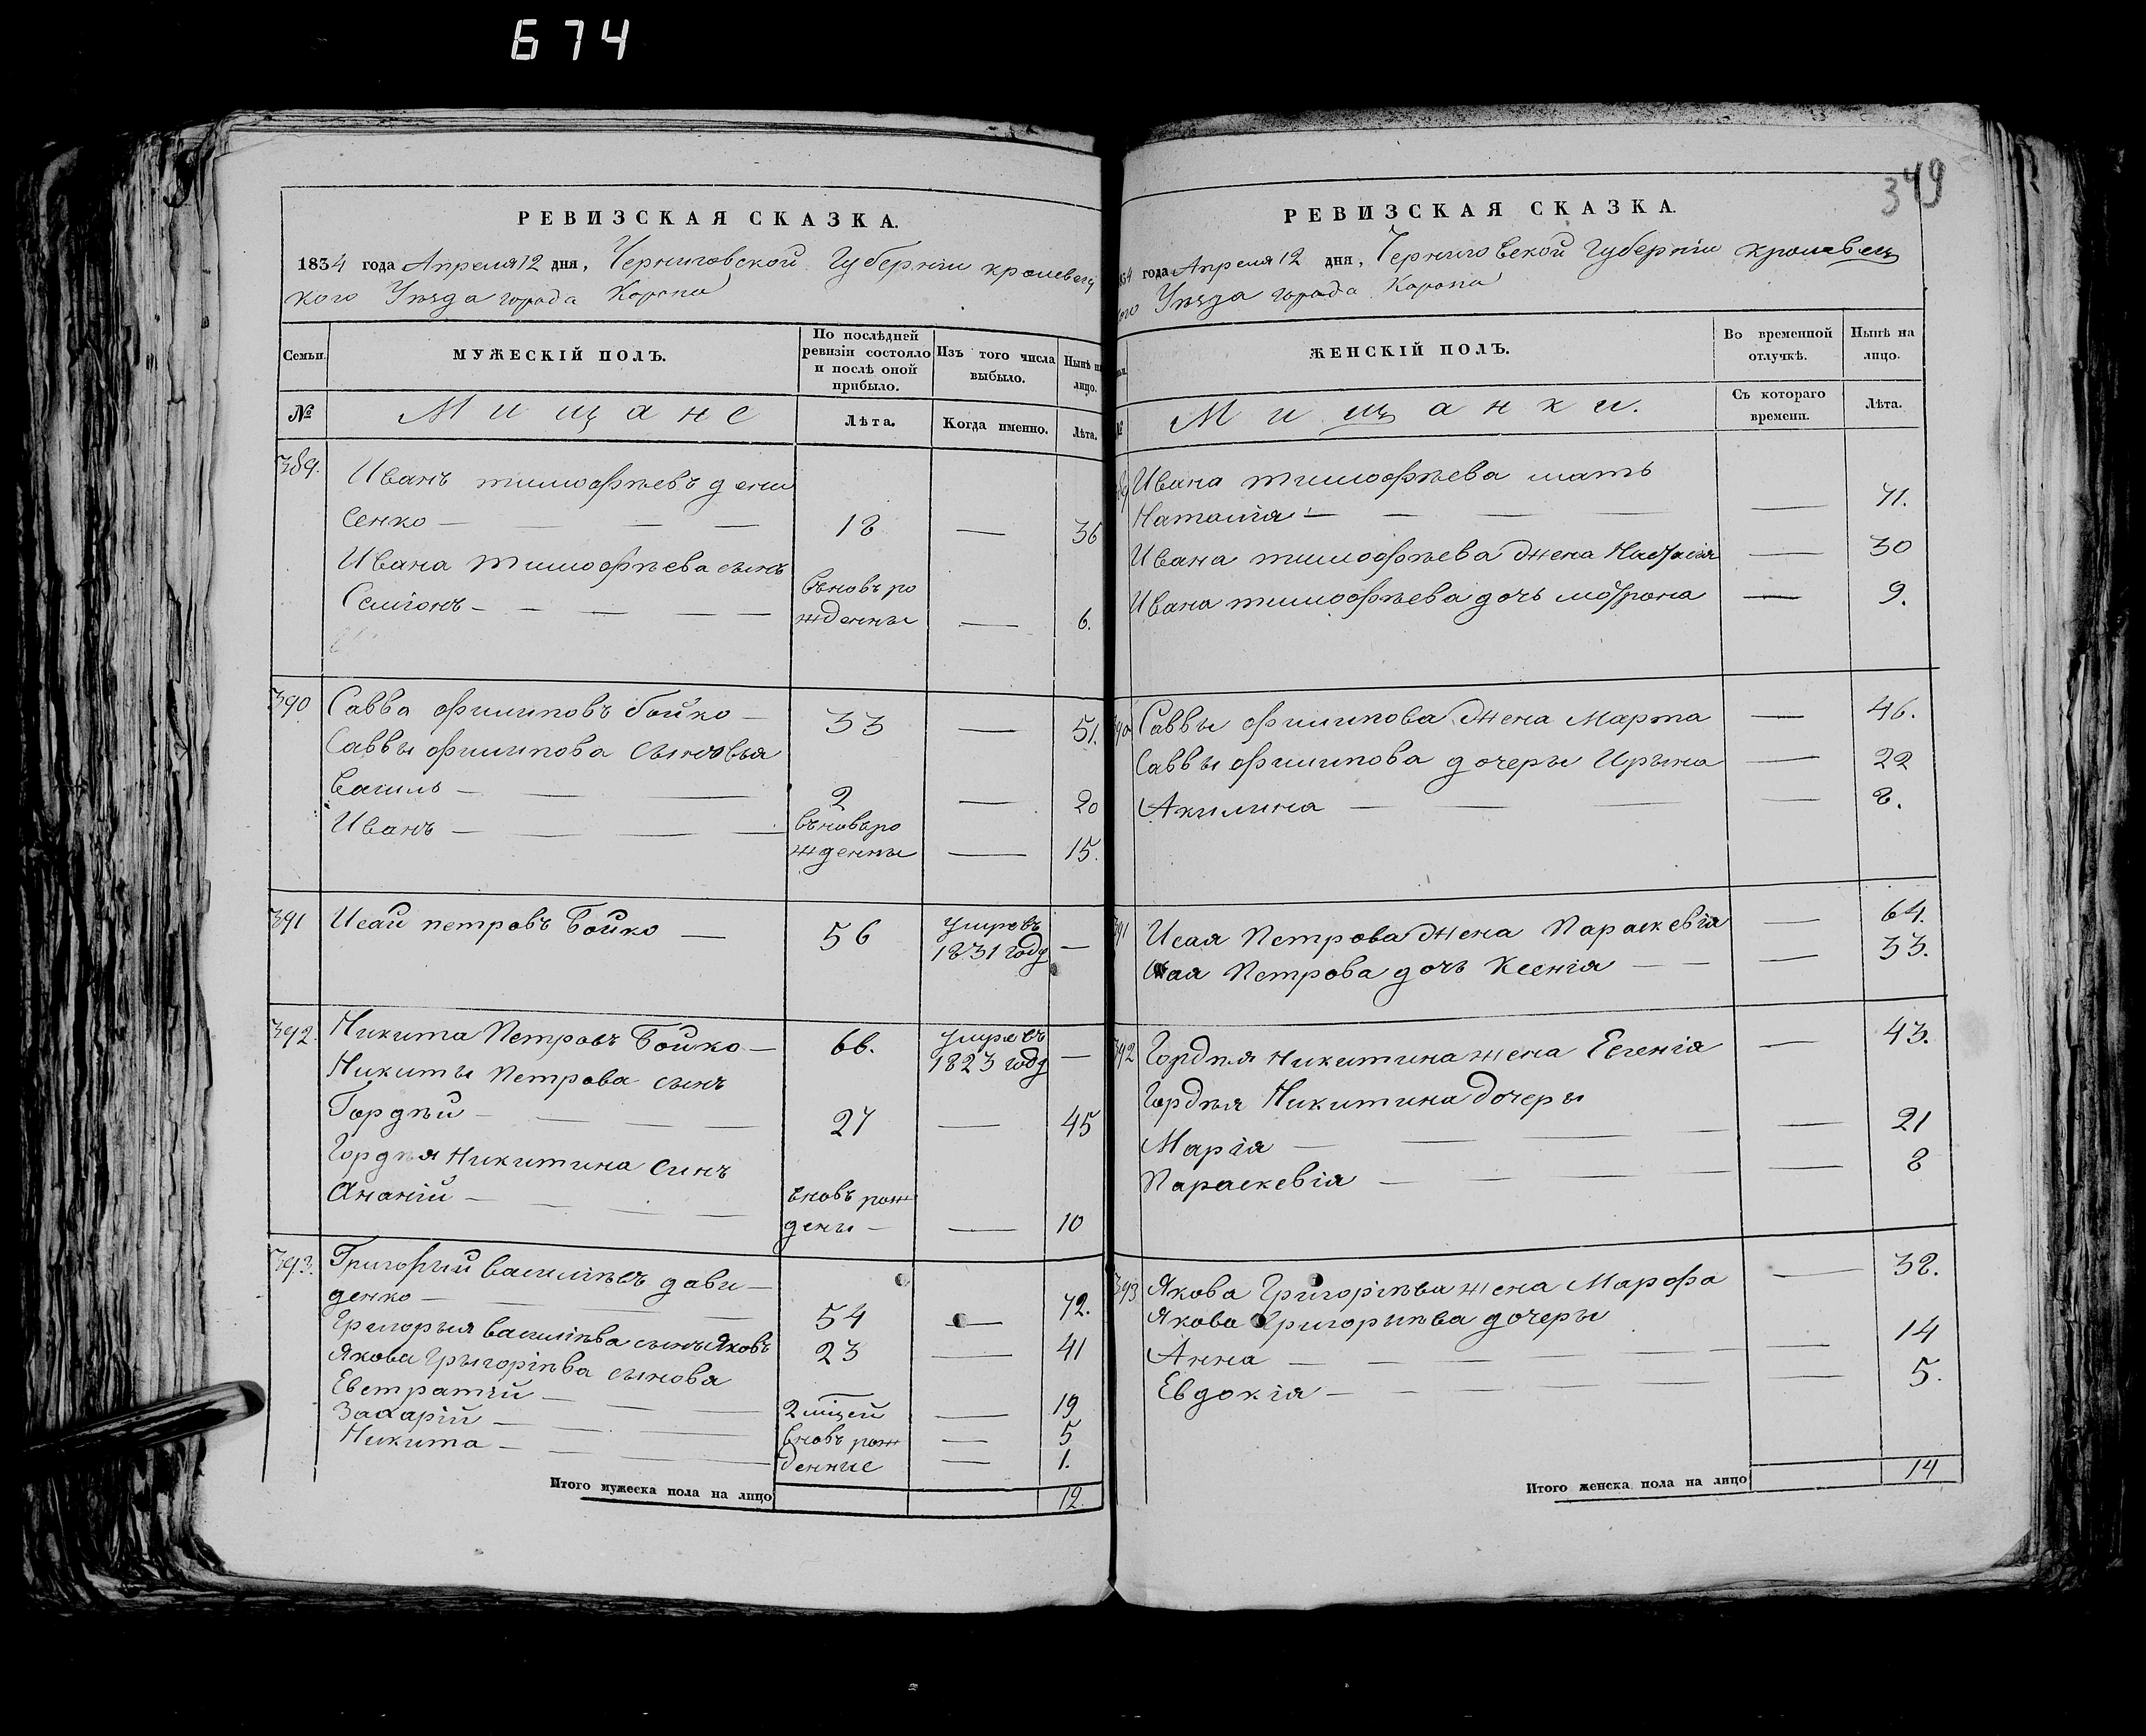 674
РЕВИЗСКАЯ СКАЗКА.
1834 года Апреля 12 дня, Черниговской Губерніи кролевец
кого Уезда города Коропа
Семьи.
МУЖЕСКІЙ ПОЛЪ.
По послѣдней ревизіи состояло и послѣ оной прибыло.
Изъ того числа выбыло.
Нынѣ на лицо.
№
Мищане
Лѣта.
Когда именно.
Лѣта.
389.
Иванъ тимофѣевъ дени
сенко — 18 — 36
Ивана тимофѣева сынъ
Семіонъ — въновъ ро
жденны — 6.
390
Савва филиповъ бойко — 33 — 51.
Саввы филипова сыновья
Василь — 2 — 20
Иванъ — въновъ ро
жденны — 15.
391
Исай петровъ Бойко — 56 умровъ
1831 году —
392.
Никита Петровъ Бойко — 66. умревъ
1823 году —
Никиты Петрова сынъ
Гордѣй — 27 — 45
Гордѣя Никитина синъ
Ананій — вновъ рож
дены — — 10
393.
Григорий василіевъ дави
денко — 54 — 72.
Григорыя василіева сынъ Яковъ 23 — 41
Якова Грыгоріѣва сынова
Евстратѣй — 2 мцей — 19
Захарій — вновъ рож — 5
Никита — денные — 1.
Итого мужеска пола на лицо 12.
349
РЕВИЗСКАЯ СКАЗКА.
34 года Апреля 12 дня, Черниговской Губерніи кролевец
кого Уезда города Коропа
ЖЕНСКІЙ ПОЛЪ.
Во временной отлучкѣ.
Нынѣ на лицо.
№
Мищанки.
Съ котораго времени.
Лѣта.
89
Ивана тимофѣева мать
Наталія — — 71.
Ивана тимофѣева жена Настасія — 30
Ивана тимофѣева дочь мотрона — 9.
390
Саввы филипова жена Марта — 46.
Саввы филипова дочеры Ирына — 22
Акилина — — 8.
391
Исая Петрова жена Параскевія — 64.
Исая Петрова дочь Ксенія — — 33.
392
Гордѣя Никитина жена Евгенія — 43.
Гордѣя Никитина дочеры
Марія — — 21
Параскевія — — 8
393
Якова Григоріѣва жена Марфа — 38.
Якова Григорыѣва дочеры
Анна — — 14
Евдокія — — 5.
Итого женска пола на лицо 14